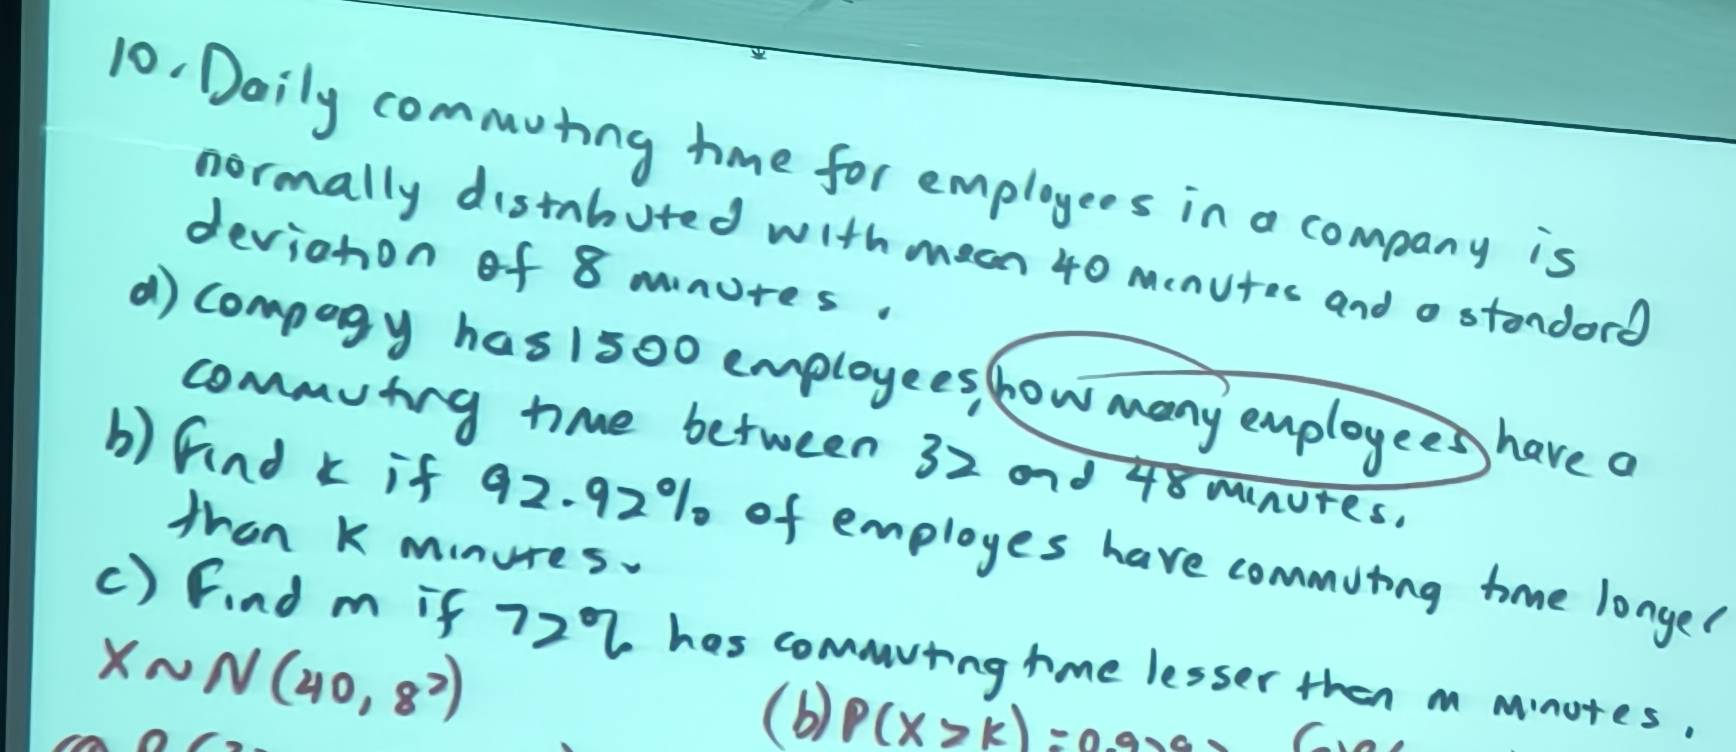 10. Daily commuting time for employees in a company is
normally distributed with mean 40 minutes and a standard
deviation of 8 minutes.
a) compagy has 1500 employees, how many employees have a
commuting time between 32 and 48 minutes.
b) Find k if 92.92% of employes have commuting time longer
than k minutes.
c) Find m if 72% has commuting time lesser than m minutes.
X ~ N (40, 8²)
(b) P(X > k) =